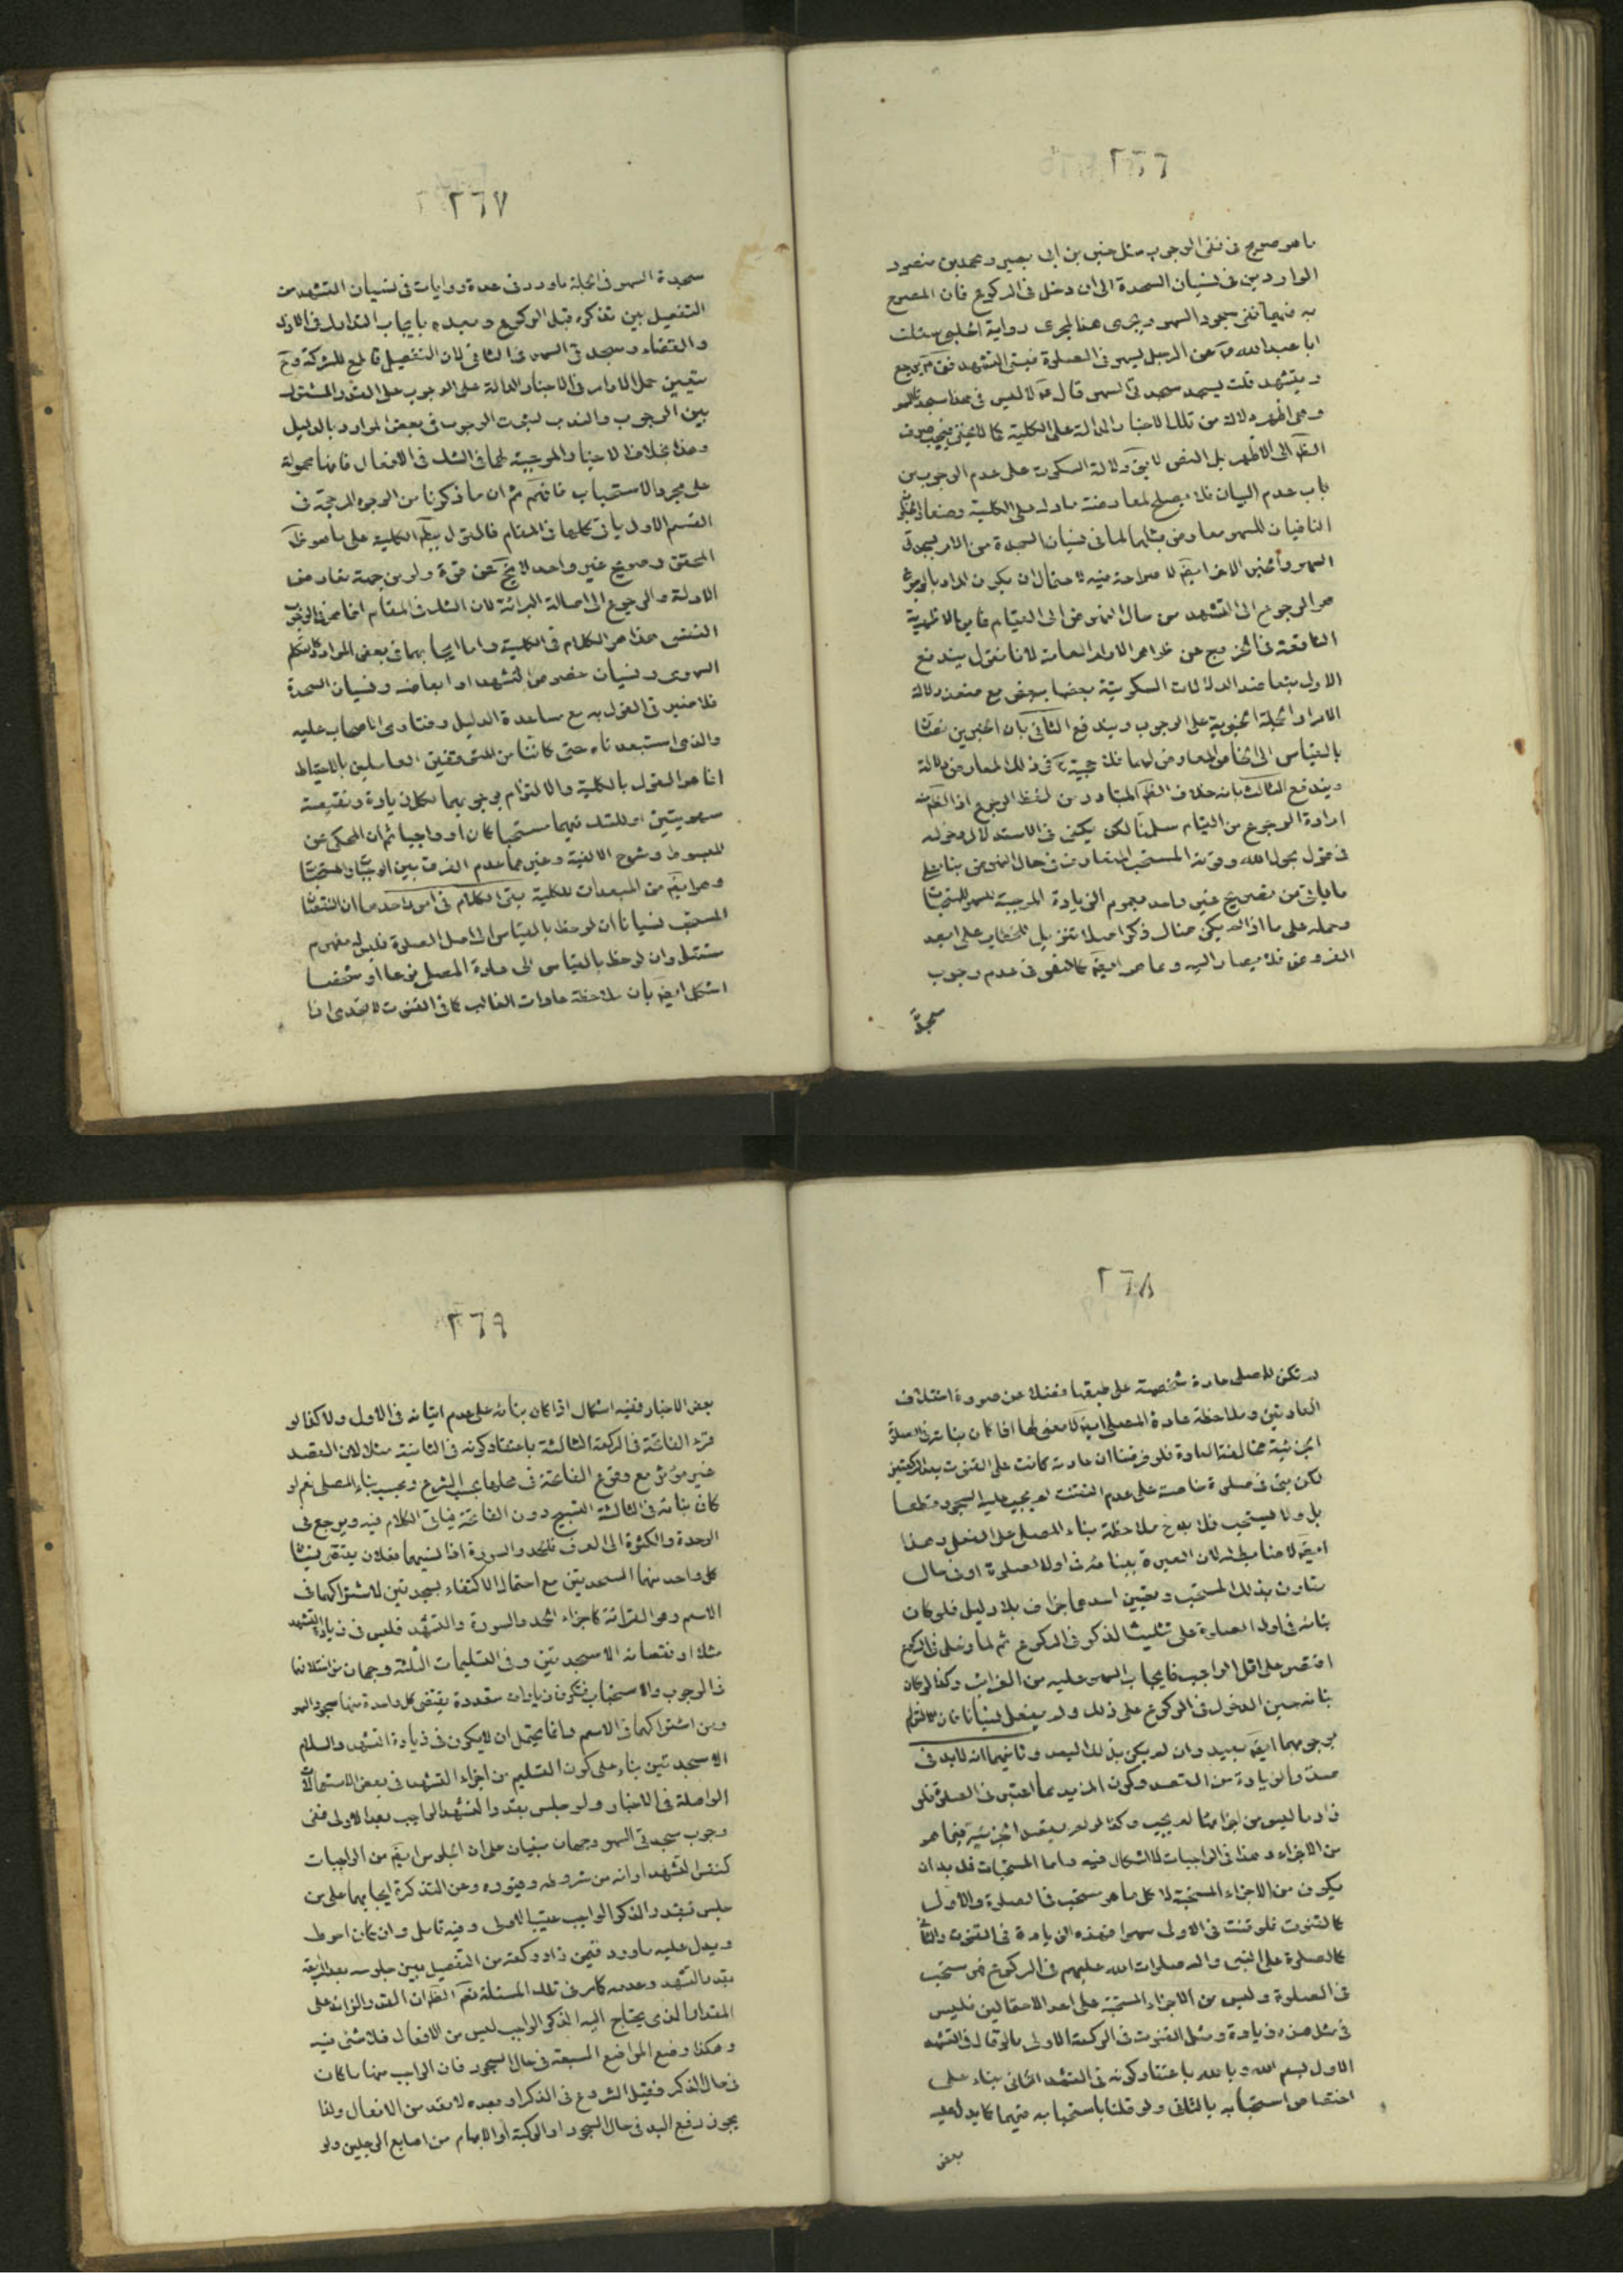 ٢٦٦
ما هو صريح في نفي الوجوب مثل خبر بن ابي بصير ومحمد بن منصور
الواردين في نسيان السجدة الى ان دخل في الركوع فان المصرح
به فيهما نفي سجود السهو ويجرى هذا المجرى رواية الحلبي سئلت
ابا عبد الله عن الرجل يسهو في الصلوة فينسى التشهد فق يرجع
ويتشهد قلت يسجد سجدتي السهو قال لا ليس في هذا سجدتا السهو
وهي اظهر دلالة من تلك الاخبار الدالة على الكلية كما لا يخفى فيجب صرف
الظ الى الاظهر بل النص لا يق دلالة السكوت على عدم الوجوب من
باب عدم البيان فلا يصلح لمعارضة ما دل على الكلية وضعا والخبران
النافيان للسهو معارض بمثلهما في نسيان السجدة من الامر بسجدتي
السهو والخبر الاخر ايضً لا صراحة فيه لاحتمال ان يكون المراد بالرجوع
هو الرجوع الى التشهد من حال النهوض الى القيام فاين الاظهرية
النافعة في الخروج عن ظواهر الاوامر العامة لانا نقول يندفع
الاول بتعاضد الدلالات السكوتية بعضها ببعض مع ضعف دلالة
الامر او الجملة الخبرية على الوجوب ويندفع الثاني بان الخبرين نصان
بالقياس الى الخاص المعارض لهما فلا حجية في ذلك المعارض دلالة
ويندفع الثالث بانه خلاف الظ المتبادر من لفظ الرجوع اذ الظ منه
ارادة الرجوع من القيام سلمنا لكن يكفي في الاستدلال دخوله
في قول بحول الله وقوته المستحب المتعارف في حال النهوض بناء على
ما ياتي من تصريح غير واحد بعموم الزيادة الموجبة للسهو للمستحبات
وحمله على ما اذا لم يكن هناك ذكر اصلا تنزيل للخطاب على ابعد
الفروض فلا يصار اليه ومما هو ايضً كالنص في عدم وجوب
سجدة
٢٦٧
سجدة السهو في الجملة ما ورد في عدة روايات في نسيان التشهد من
التفصيل بين تذكره قبل الركوع وبعده بايجاب التدارك في الاول
والقضاء وسجدتي السهو في الثاني لان التفصيل قاطع للشركة وح
يتعين حمل الاوامر في الاخبار الدالة على الوجوب على القدر المشترك
بين الوجوب والندب لثبوت الوجوب في بعض الموارد بالدليل
وهذا بخلاف الاخبار الموجبة لهما في الشك في الافعال فانها محمولة
على مجرد الاستحباب فافهم ثم ان ما ذكرنا من الوجوه المرجحة في
القسم الاول ياتي كلها في المقام فالقول بهذه الكلية على ما هو ظ
المحقق وصريح غير واحد لا يخ عن قوة ولو من جهة تعارض
الادلة والرجوع الى اصالة البرائة لان الشك في المقام انما هو في الوجوب
النفسي هذا هو الكلام في الكلية واما ايجابهما في بعض الموارد كالتكلم
السهوي ونسيان خصوص التشهد او ابعاضه ونسيان السجدة
فلا ضير في القول به مع مساعدة الدليل وفتاوى الاصحاب عليه
والذي استبعدناه حتى كاننا من المتوقفين العاملين بالاحتياط
انما هو القول بالكلية والالتزام بوجوبهما لكل زيادة ونقيصة
سهويتين او للشك فيهما مستحبا كان او واجبا ثم ان المحكى عن
المبسوط وشرح الالفية وغيرهما عدم الفرق بين الواجبات والمستحبات
وهو ايضً من المبعدات للكلية بقى الكلام في امر واحد وهو ان انتقاص
المستحب نسيانا ان لوحظ بالقياس الى اصل الصلوة فليس له مفهوم
مستقل وان لوحظ بالقياس الى عادة المصلي نوعا او شخصا
اشكل ايضً بان ملاحظة عادات الغالب كما في القنوت لا تجدى اذا
٢٦٨
لم تكن للمصلي عادة شخصية على طبقها فضلا عن صورة اختلاف
العادتين وملاحظة عادة المصلي ايضً لا معنى لها اذا كان بنائه في الصلوة
الجزئية مخالفة العادة فلو فرضنا ان عادته كانت على القنوت بعد الركعتين
لكن بنى في صلوة خاصة على عدم القنوت لم يجب عليه السجود قطعا
بل ولا يستحب فلا بد من ملاحظة بناء المصلي على الفعل وهذا
ايضً لا ضابط له لان العبرة ببنائه في اول الصلوة او في حال
يتاون بذلك المستحب وتعيين احدهما جزاف بلا دليل فلو كان
بنائه في اول الصلوة على تثليث الذكر في الركوع ثم لما دخل في الركوع
اقتصر على اقل الواجب فايجاب السهو عليه من الغرائب وكذا لو كان
بنائه حين الدخول في الركوع على ذلك ولم يفعل نسيانا فان الالتزام
بوجوبهما ايضً بعيد وان لم يكن بذلك البعد وثانيهما انه لا بد في
صدق الزيادة من التعمد وكون المزيد مما اعتبر في الصلوة فلو
زاد ما ليس من اجزائها لم يجب وكذا لو لم يقصد الجزئية فيما هو
من الاجزاء وهذا في الواجبات لا اشكال فيه واما المستحبات فلا بد ان
يكون من الاجزاء المستحبة لا كل ما هو مستحب في الصلوة والاول
كالقنوت فلو قنت في الاولى سهوا فهذه الزيادة في القنوت والثاني
كالصلوة على النبي واله صلوات الله عليهم في الركوع فهو مستحب
في الصلوة وليس من الاجزاء المستحبة على احد الاحتمالين فليس
في مثل هذه زيادة ومثل القنوت في الركعة الاولى ما لو قال في التشهد
الاول بسم الله وبالله باعتقاد كونه في التشهد الثاني بناء على
اختصاص استحبابه بالثاني ولو قلنا باستحبابه فيهما كما يدل عليه
بعض
٢٦٩
بعض الاخبار ففيه اشكال اذا كان بنائه على عدم اتيانه في الاول ولا كذا لو
قرء الفاتحة في الركعة الثالثة باعتقاد كونه في الثانية مثلا لان القصد
غير مؤثر مع وقوع الفاتحة في محلها بحسب الشرع وبحسب بناء المصلي نعم لو
كان بنائه في الثالثة التسبيح دون الفاتحة فياتي الكلام فيه ويرجع في
الوحدة والكثرة الى العرف فالحمد والسورة اذا نسيهما فعلان يقتضي نسيان
كل واحد منهما السجدتين مع احتمال الاكتفاء بسجدتين لاشتراكهما في
الاسم وهو القرائة كاجزاء الحمد والسورة والتشهد فليس في زيادة التشهد
مثلا او نقصانه الا سجدتين وفي التسليمات الثلثة وجهان من اختلافها
في الوجوب والاستحباب فتكون زيادات متعددة يقتضي كل واحدة منها سجود السهو
ومن اشتراكها في الاسم وانما يحتمل ان لا يكون في زيادة التشهد والسلام
الا سجدتين بناء على كون التسليم من اجزاء التشهد في بعض الاستعمالات
الواصلة في الاخبار ولو جلس بقدر التشهد الواجب بعد الاولى ففي
وجوب سجدتي السهو وجهان مبنيان على ان الجلوس ايضً من الواجبات
كنفس التشهد او انه من شروطه وقيوده وعن التذكرة ايجابهما على من
جلس بقدر الذكر الواجب عقيب الاولى وفيه تامل وان كان احوط
ويدل عليه ما ورد فيمن زاد ركعة من التفصيل بين جلوسه بعد الرابعة
بقدر التشهد وعدمه كما مر في تلك المسئلة نعم الظ ان القدر الزائد على
المقدار الذي يحتاج اليه الذكر الواجب ليس من الافعال فلا شئ فيه
وهكذا وضع المواضع السبعة في حال السجود فان الواجب منها ما كان
في حال الذكر فقبل الشروع في الذكر او بعده لا يعد من الافعال ولذا
يجوز رفع اليد في حال السجود او الركبة او الابهام من اصابع الرجلين ولو